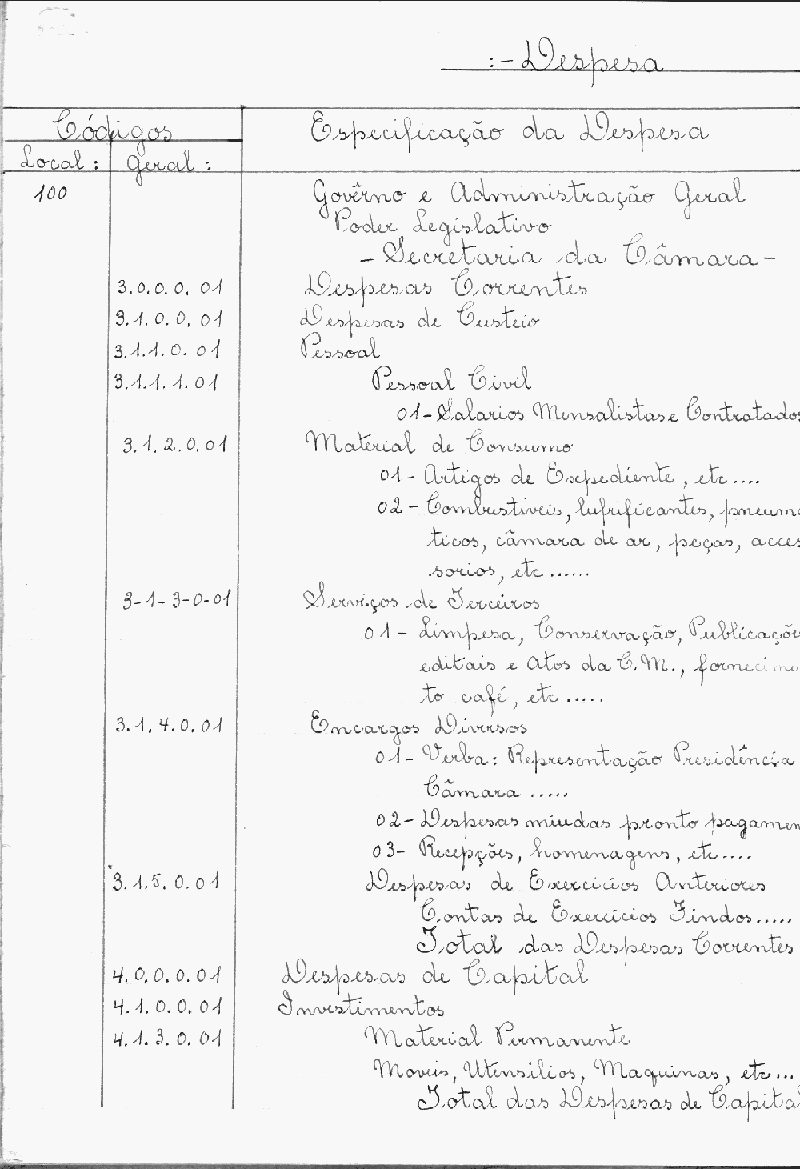 :- Despesa
Códigos Especificação da Despesa
Local: Geral:
100 Govêrno e Administração Geral
Poder Legislativo
- Secretaria da Câmara -
3.0.0.0.01 Despesas Correntes
3.1.0.0.01 Despesas de Custeio
3.1.1.0.01 Pessoal
3.1.1.1.01 Pessoal Civil
01- Salarios Mensalistas e Contratados
3.1.2.0.01 Material de Consumo
01- Artigos de Expediente, etc....
02- Combustiveis, lufrificantes, pneuma
ticos, câmara de ar, peças, acces
sorios, etc......
3-1-3-0-01 Serviços de Terceiros
01- Limpesa, Conservação, Publicaçõe
editais e Atos da C.M., fornecime
to café, etc.....
3.1.4.0.01 Encargos Diversos
01- Verba: Representação Presidência
Câmara .....
02- Despesas miudas pronto pagamen
03- Recepções, homenagens, etc....
3.1.5.0.01 Despesas de Exercicios Anteriores
Contas de Exercicios Findos.....
Total das Despesas Correntes
4.0.0.0.01 Despesas de Capital
4.1.0.0.01 Investimentos
4.1.3.0.01 Material Permanente
Moveis, Utensilios, Maquinas, etc...
Total das Despesas de Capital